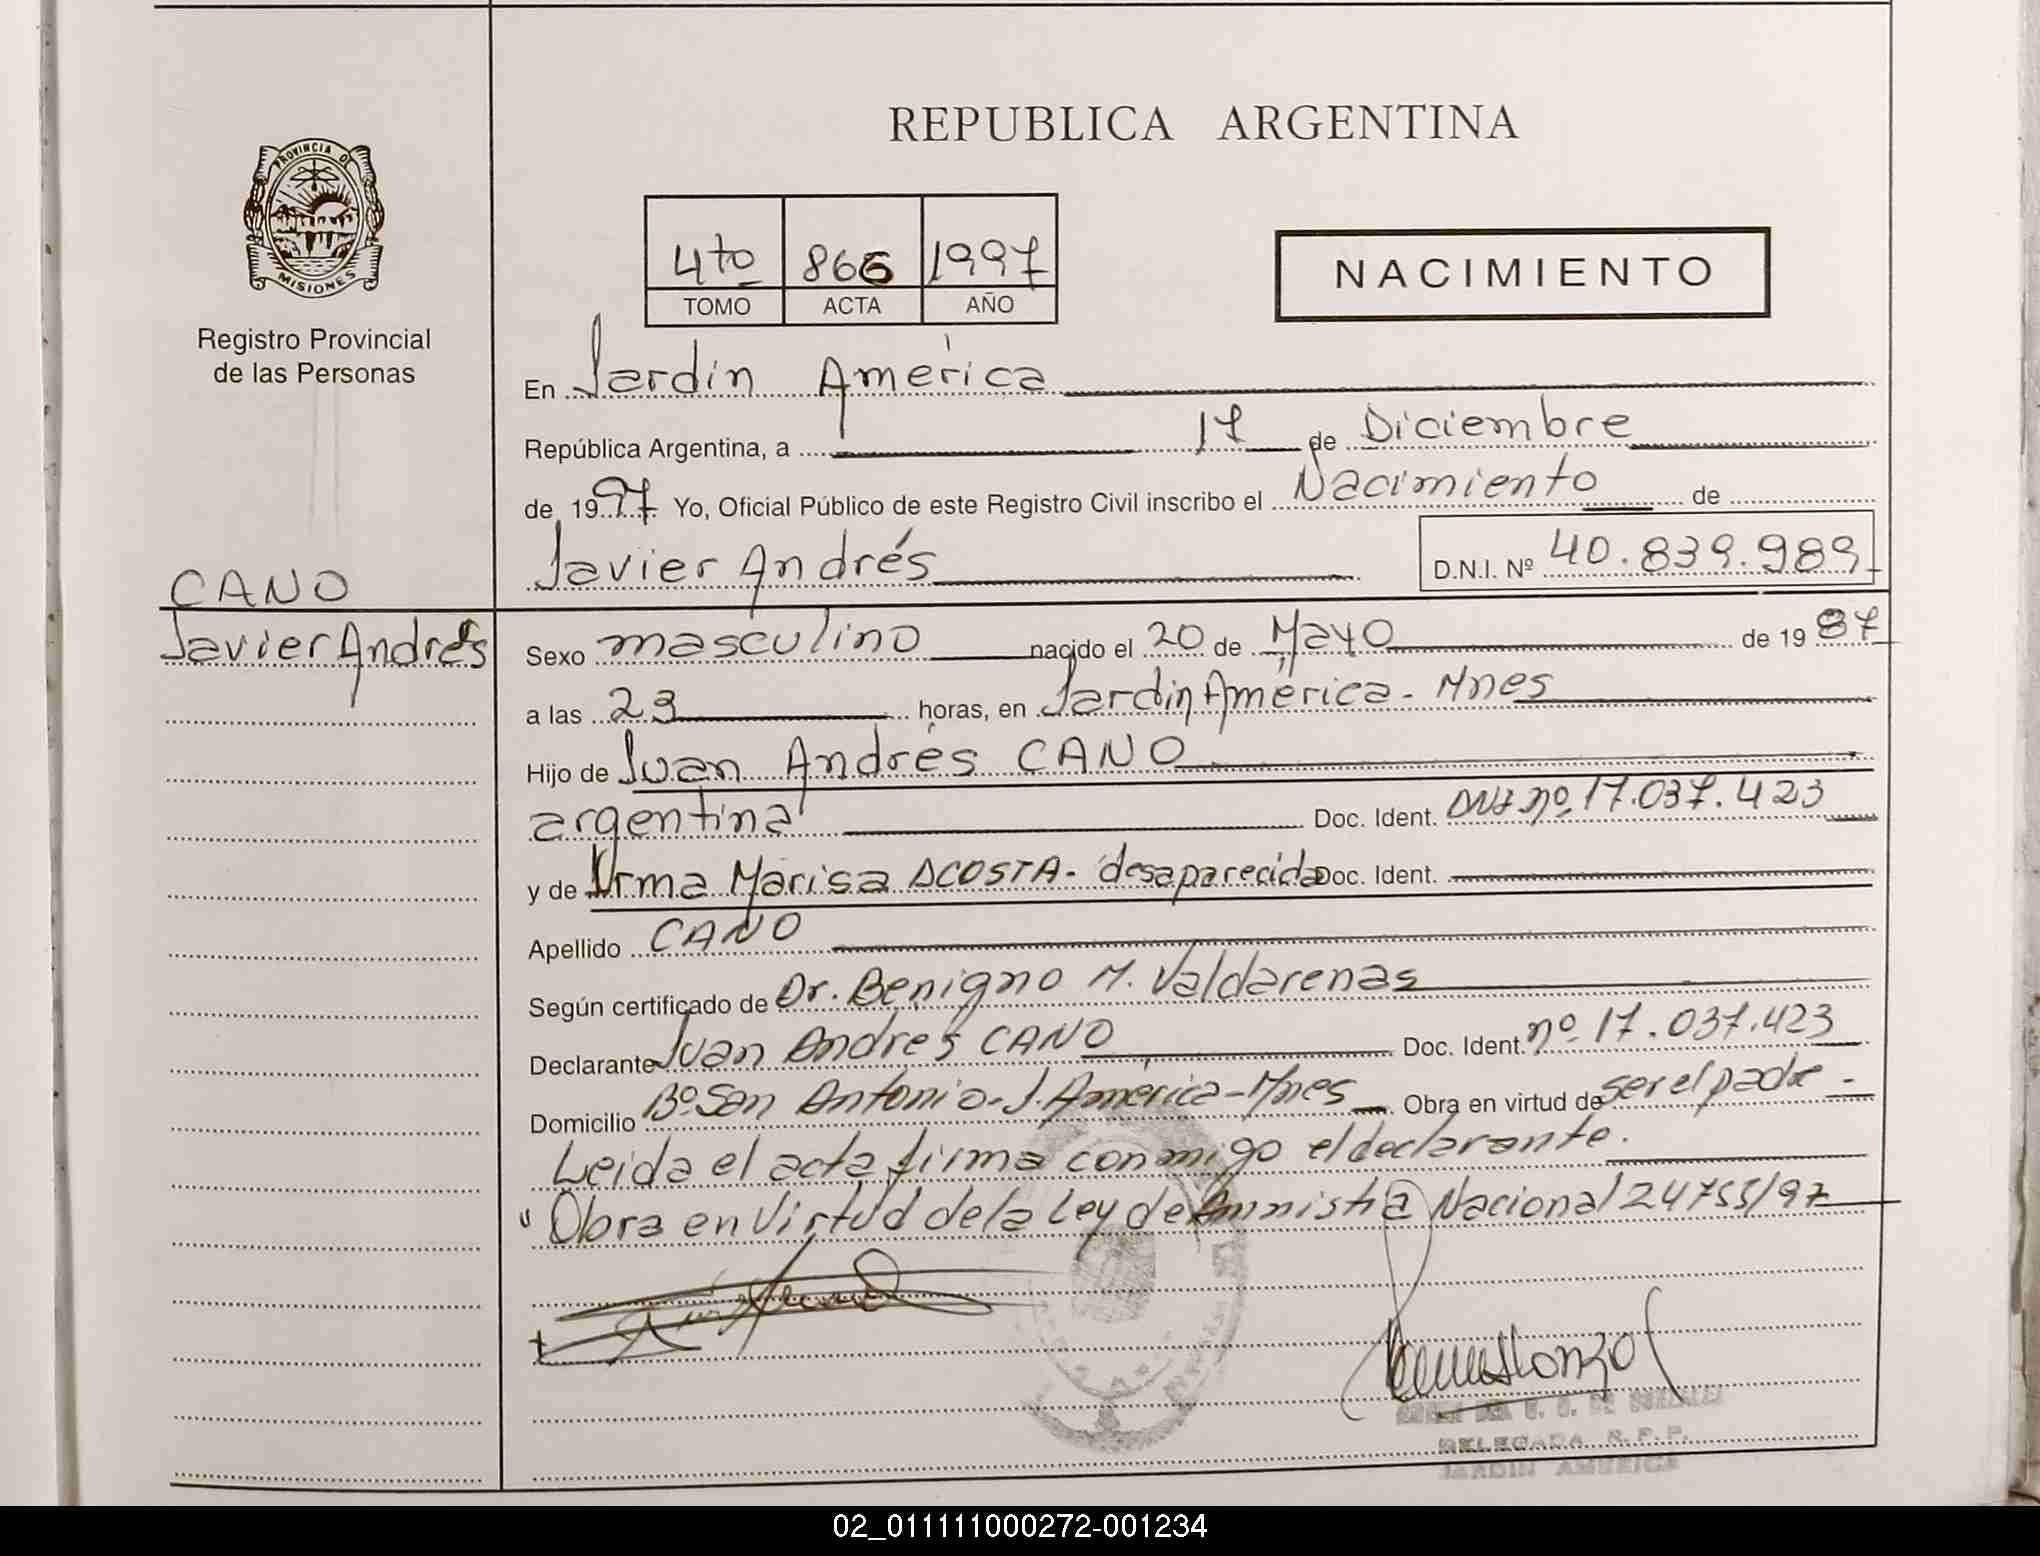 REPUBLICA ARGENTINA
PROVINCIA DE
MISIONES
Registro Provincial
de las Personas
4to 866 1997
TOMO ACTA AÑO
NACIMIENTO
En Jardín América
República Argentina, a 17 de Diciembre
de 1997 Yo, Oficial Público de este Registro Civil inscribo el Nacimiento de
Javier Andrés D.N.I. Nº 40.839.989
CANO
Javier Andrés
Sexo masculino nacido el 20 de Mayo de 1987
a las 23 horas, en Jardín América - Mnes
Hijo de Juan Andrés CANO
argentina Doc. Ident. DNI nº 17.037.423
y de Irma Marisa ACOSTA - desaparecida Doc. Ident.
Apellido CANO
Según certificado de Dr. Benigno M. Valdarenas
Declarante Juan Andrés CANO Doc. Ident. nº 17.037.423
Domicilio Bº San Antonio - J. América - Mnes Obra en virtud de ser el padre -
Leida el acta firma conmigo el declarante.
" Obra en Virtud de la Ley de Amnistia Nacional 24755/97
DELEGADA R.P.P.
JARDIN AMERICA
02_011111000272-001234